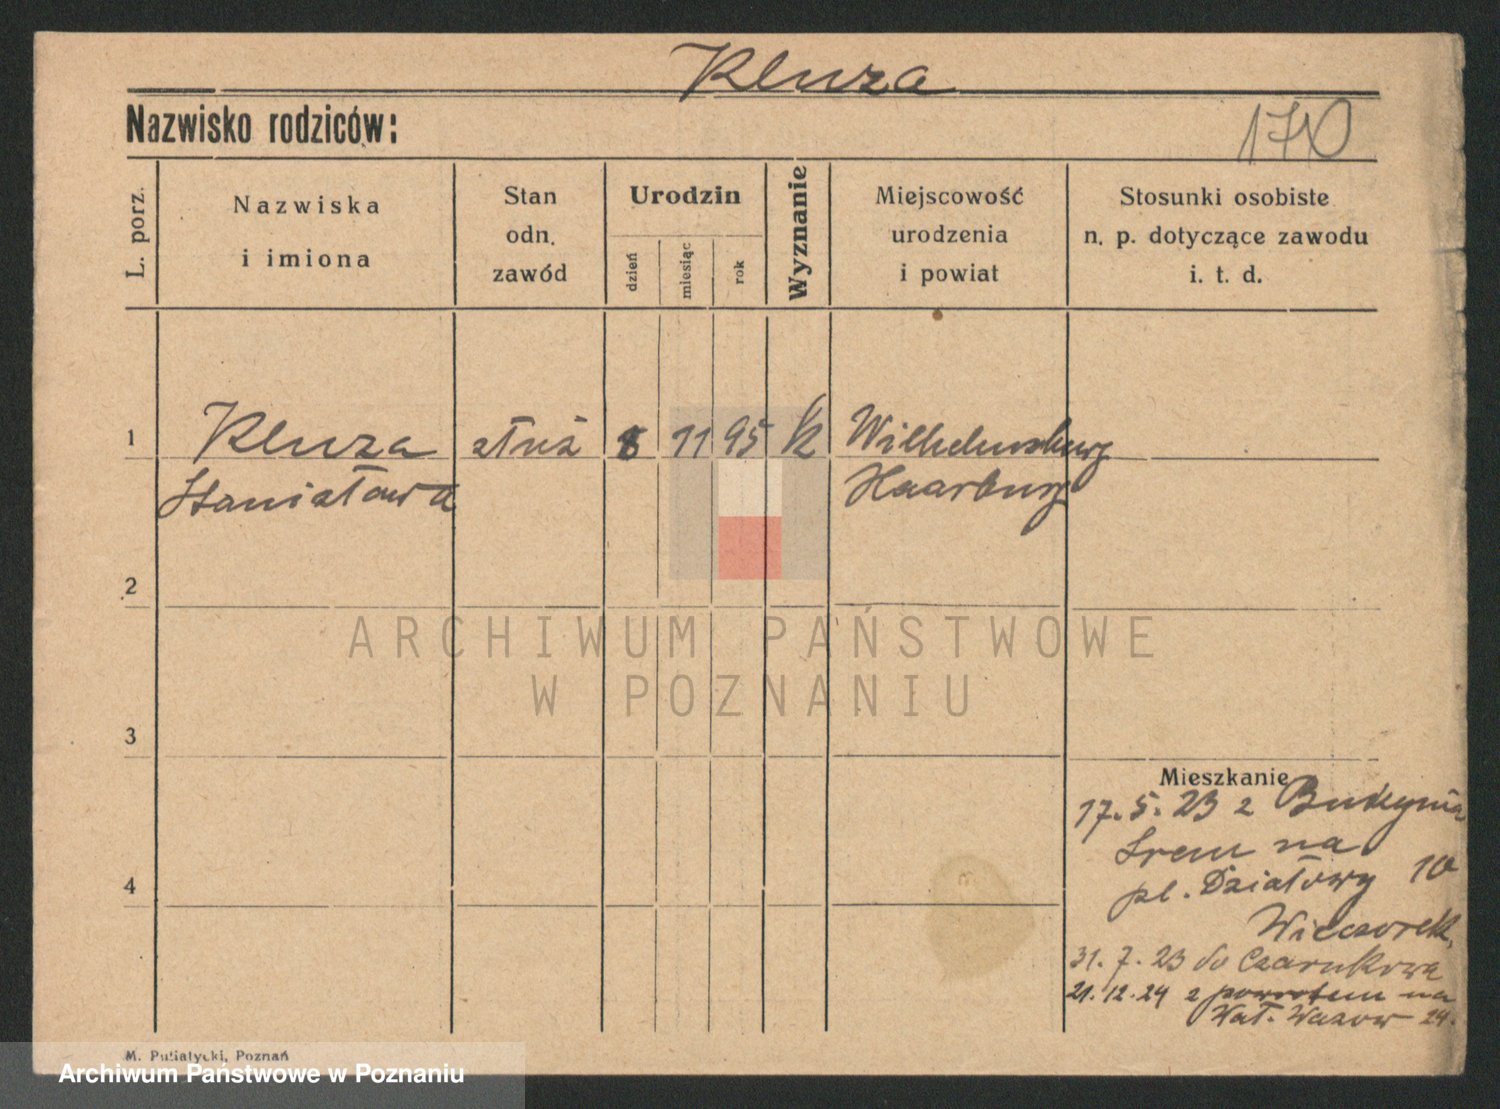 Kluza
Nazwisko rodziców:
1710
L. porz.
Nazwiska
i imiona
Stan
odn.
zawód
Urodzin
dzień
miesiąc
rok
Wyznanie
Miejscowość
urodzenia
i powiat
Stosunki osobiste
n. p. dotyczące zawodu
i. t. d.
1 Kluza służ 8 11 95 k Wilhelmsburg
Stanisława Haarburg
2
ARCHIWUM PAŃSTWOWE
W POZNANIU
3
Mieszkanie
17.5.23 z
Śrem na
pl. Działowy 10
Wieczorek,
4
31.7.23 do Czarnkowa
21.12.24 z powrotem na
Wał. Wazow 24.
M. Putiatycki, Poznań
Archiwum Państwowe w Poznaniu